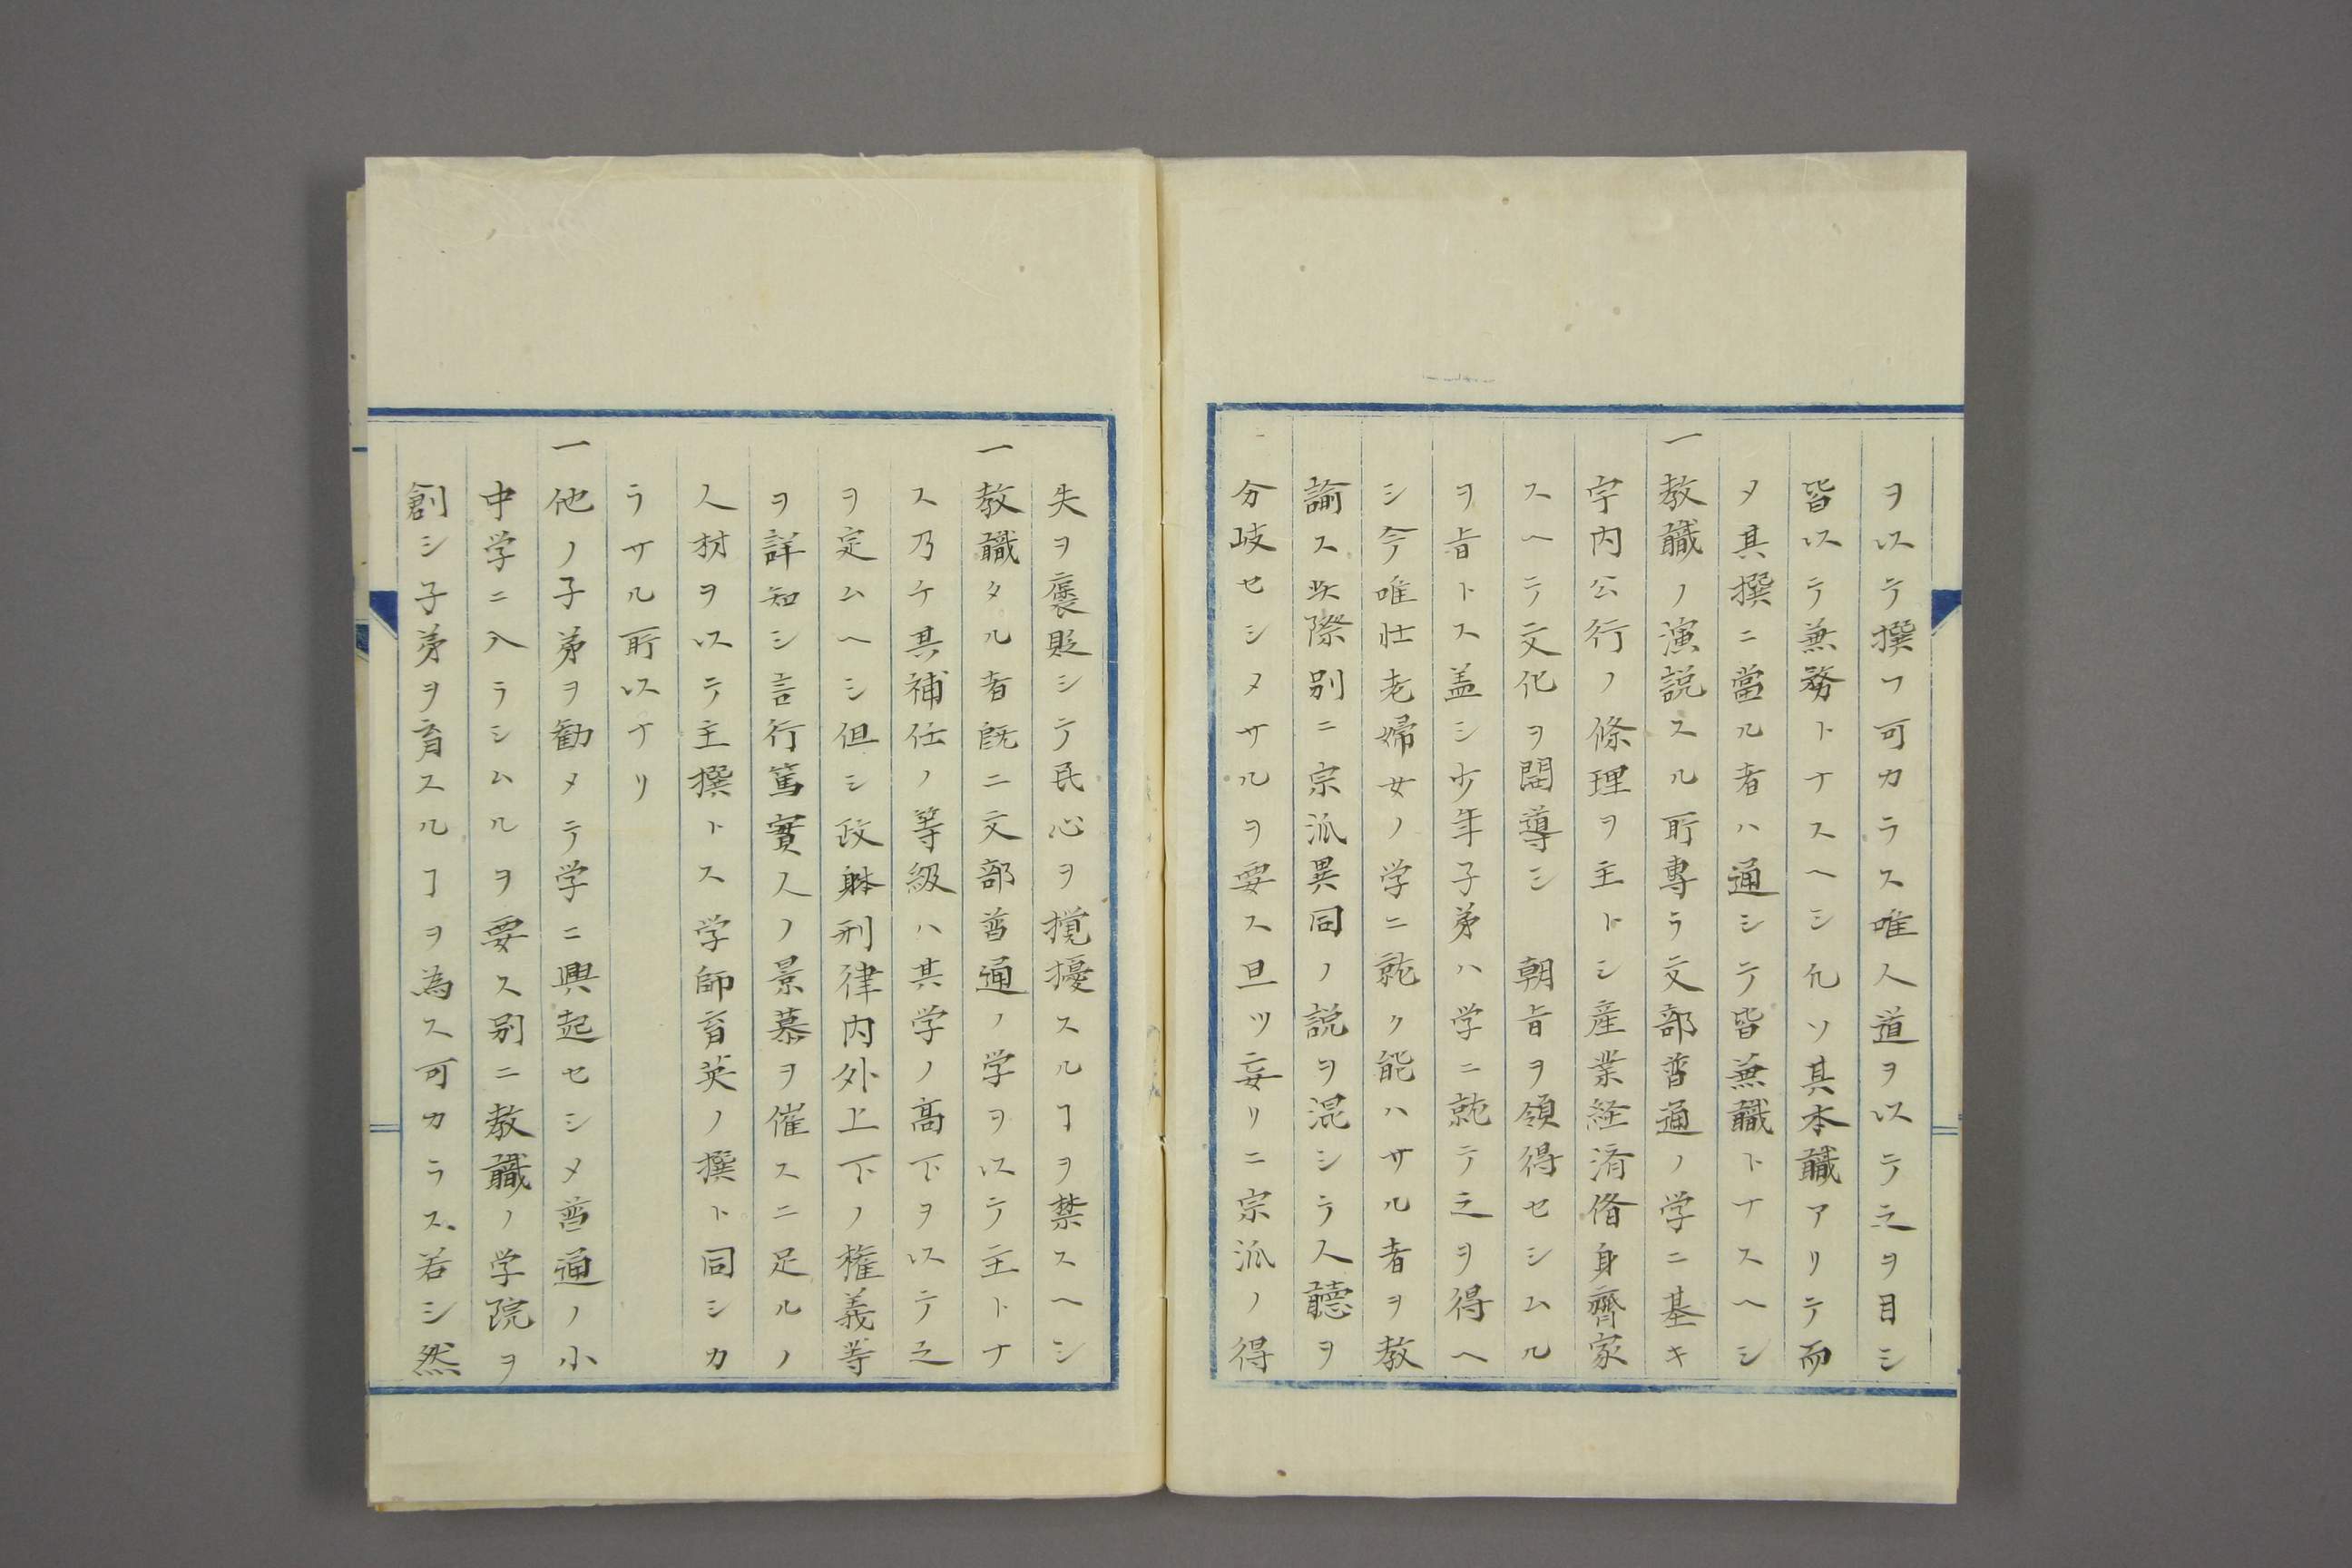 ヲ以テ撰フ可カラス唯人道ヲ以テ之ヲ目シ
皆以テ兼務トナスヘシ凢ソ其本職アリテ而
メ其撰ニ當ル者ハ通シテ皆兼職トナスヘシ
一教職ノ演説スル所專ラ文部普通ノ学ニ基キ
宇内公行ノ條理ヲ主トシ産業経済脩身齊家
スヘテ文化ヲ開導シ　朝旨ヲ領得セシムル
ヲ旨トス盖シ少年子弟ハ学ニ就テ之ヲ得ヘ
シ今唯壮老婦女ノ学ニ就ク能ハサル者ヲ教
諭ス此際別ニ宗派異同ノ説ヲ混シテ人聽ヲ
分岐セシメサルヲ要ス且ツ妄リニ宗派ノ得
失ヲ褒貶シテ民心ヲ攪擾スルヿヲ禁スヘシ
一教職タル者既ニ文部普通ノ学ヲ以テ主トナ
ス乃チ其補任ノ等級ハ其学ノ高下ヲ以テ之
ヲ定ムヘシ但シ政躰刑律内外上下ノ権義等
ヲ詳知シ言行篤實人ノ景慕ヲ催スニ足ルノ
人材ヲ以テ主撰トス学師育英ノ撰ト同シカ
ラサル所以ナリ
一他ノ子弟ヲ勧メテ学ニ興起セシメ普通ノ小
中学ニ入ラシムルヲ要ス別ニ教職ノ学院ヲ
創シ子弟ヲ育スルヿヲ為ス可カラス若シ然